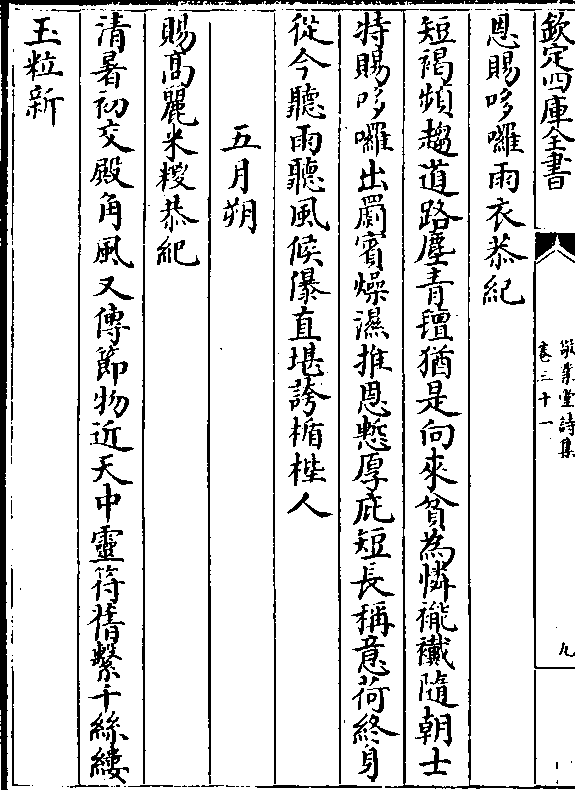 欽定四庫全書
敬業堂詩集
卷三十一
九
恩賜哆囉雨衣恭紀
短褐頻趨道路塵青氊猶是向來貧為憐襤襶隨朝士
特賜哆囉出罽賓燥濕推恩慙厚庇短長稱意荷終身
從今聽雨聽風候㬥直堪誇楯桎人
五月朔
賜髙麗米糉恭紀
清暑初交殿角風又傳節物近天中靈符舊繫千絲縷
玉粒新